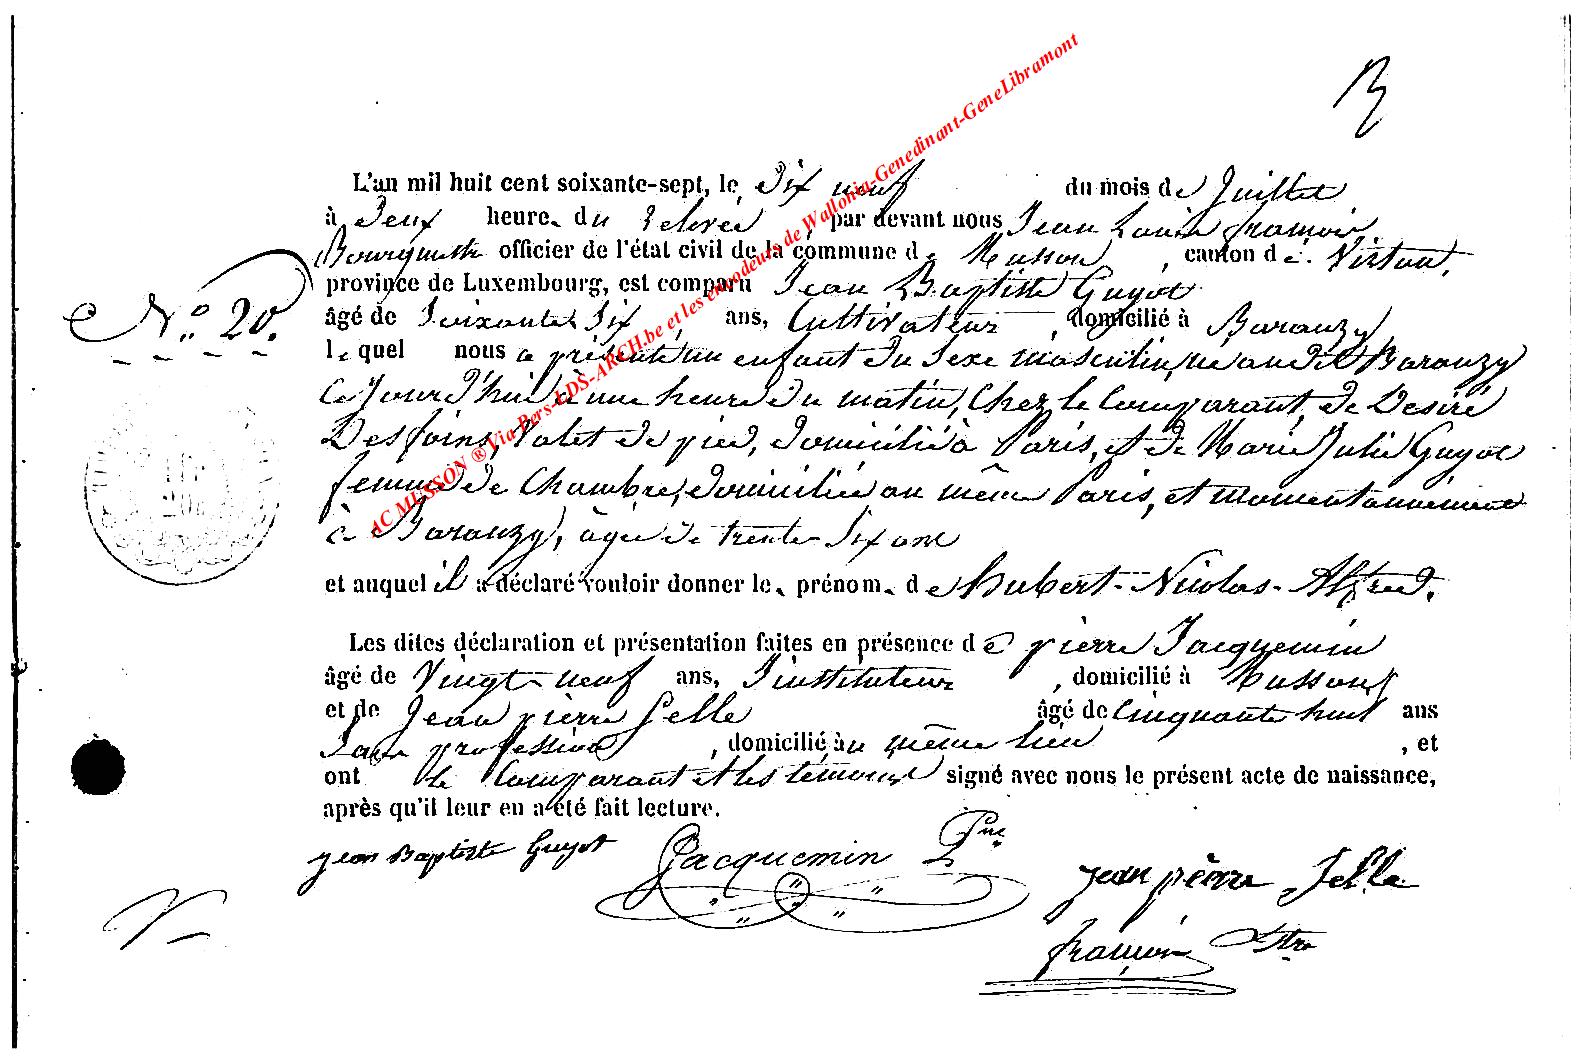 L'an mil huit cent soixante-sept, le Dix neuf du mois de Juillet
à Deux heure du relevée, par devant nous Jean Louis françois
Bourgmestre officier de l'état civil de la commune de Musson, canton de Virton,
N° 20.
province de Luxembourg, est comparu Jean Baptiste Guyot
âgé de Soixante Six ans, Cultivateur, domicilié à Baranzy
le quel nous a présenté un enfant du Sexe masculin, né au dit Baranzy
Ce Jourd'hui à une heure du matin, Chez le Comparant, de Desiré
Desfoins, Valet de pied, domicilié à Paris, et de Marie Julie Guyot
femme de Chambre, domiciliée au même Paris, et momentannément
à Baranzy, âgée de trente Six ans
et auquel il a déclaré vouloir donner le prénom de Hubert-Nicolas-Alfred.
Les dites déclaration et présentation faites en présence de pierre Jacquemin
âgé de Vingt-neuf ans, Instituteur, domicilié à Musson
et de Jean pierre Selle âgé de Cinquante huit ans
Sans profession, domicilié au même lieu, et
ont le Comparant et les témoins signé avec nous le présent acte de naissance,
après qu'il leur en a été fait lecture.
jean Baptiste Guyot Jacquemin Prre jean pèrre Selle
françois
AC MUSSON ® Via Pers-LDS-ARCH.be et les encodeurs de Wallonia-Genedinant-GeneLibramont